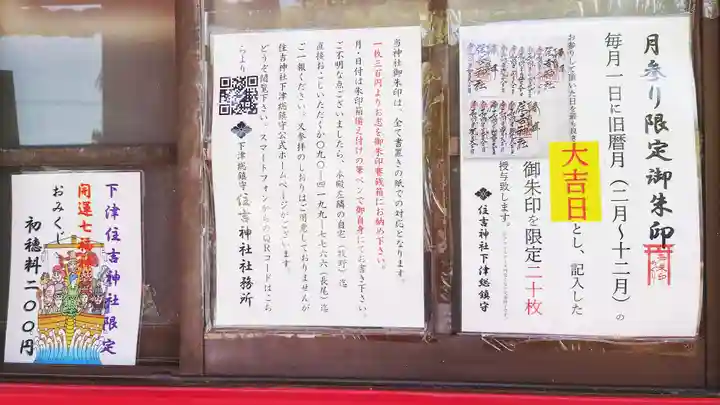 月参り限定御朱印
毎月一日に旧暦月(二月~十二月)の
大吉日とし、記入した
御朱印を限定二十枚
授与致します。
住吉神社下津総鎮守
当神社御朱印は、全て書置きの紙での対応となります。
一枚三百円よりお志を御朱印賽銭箱にお納め下さい。
月・日付は朱印箱備え付けの筆ペンで御自身にてお書き下さい。
ご不明な点ございましたら、本殿左隣の自宅(牧野)迄
直接お・こしいただくか〇九〇―四一九九―七七六六(長尾)迄
ご一報ください。又参拝のしおりはご用意しておりませんが
住吉神社下津総鎮守公式ホームページがございます。
どうぞ閲覧下さい。スマートフォンからのQRコードはこち
らより
下津総鎮守 住吉神社社務所
下津住吉神社限定
開運七福神
おみくじ
初穂料二〇〇円